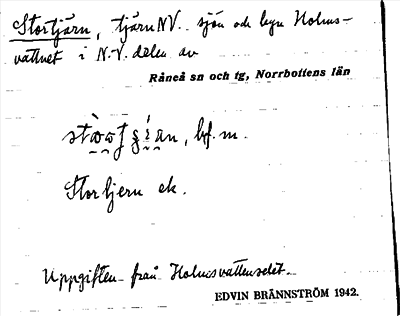 Stortjärn, tjärn NV. sjön och byn Holms-
vattnet i N.V. delen av
Råneå sn och tg, Norrbottens län
bf. m.
Stortjern ek.
Uppgiften från Holmsvattenselet.
EDVIN BRÄNNSTRÖM 1942.